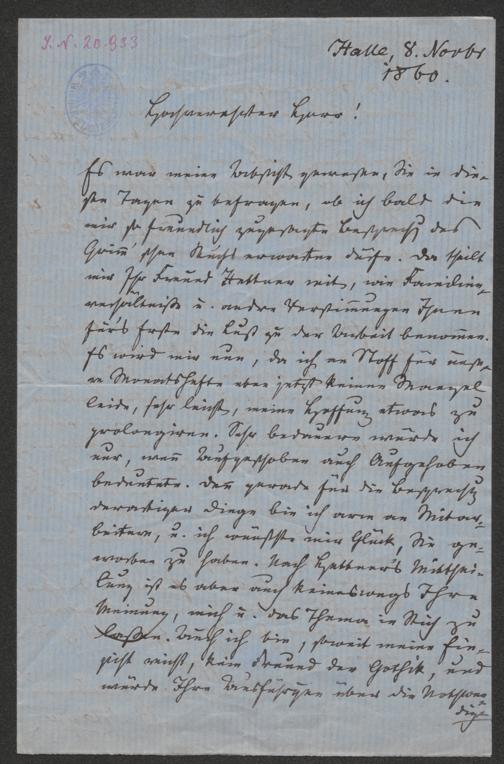 J. N. 20.933
Halle, 8. Novbr
1860.
Hochverehrter Herr!
Es war meine Absicht gewesen, Sie in die-
sen Tagen zu befragen, ob ich bald die
mir so freundlich zugesagte Besprechg des
Grimm'schen Buchs erwarten dürfe. Da theilt
mir Ihr Freund Hettner mit, wie Familien-
verhältnisse u. andre Verstimmungen Ihnen
für's Erste die Lust zu der Arbeit benommen.
Es wird mir nun, da ich an Stoff für unse-
re Monatshefte eben jetzt keinen Mangel
leide, sehr leicht, meine Hoffnung etwas zu
prolongiren. Sehr bedauern würde ich
nur, wenn Aufgeschoben auch Aufgehoben
bedeutete. Denn gerade für die Besprechg
derartiger Dinge bin ich arm an Mitar-
beitern, u. ich wünschte mir Glück, Sie ge-
worben zu haben. Nach Hettner's Mitthei-
lung ist es aber auch keineswegs Ihre
Meinung, mich u. das Thema in Stich zu
lassen. Auch ich bin, soweit meine Ein-
sicht reicht, kein Freund der Gothik, und
würde Ihre Ausführgen über die Nothwen-
dig-